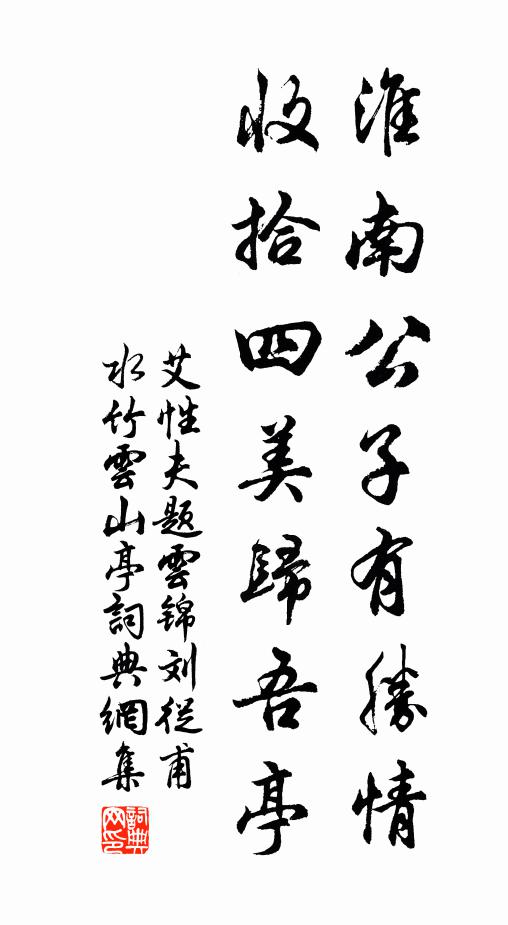 淮南公子有勝情
收拾四美歸吾亭
艾性夫題雲錦刘從甫
水竹雲山亭詞典網集
詞典网印